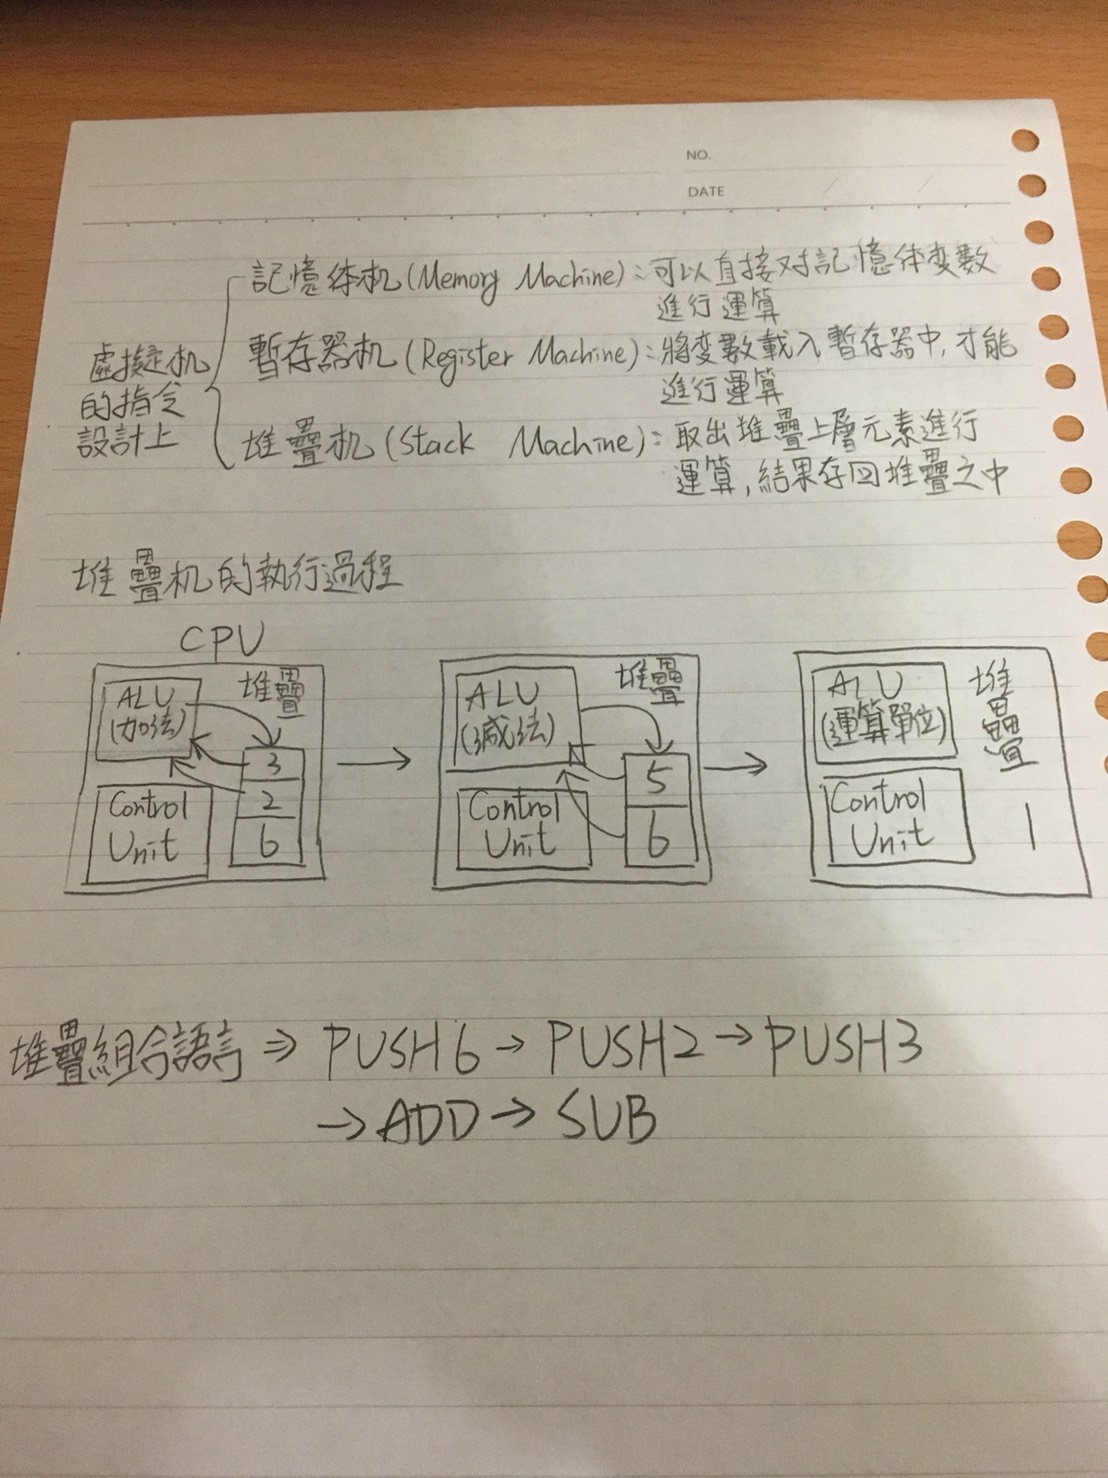 NO.
DATE
記憶体机(Memory Machine):可以直接対記憶体变數
進行運算
虛擬机
的指令
設計上
暫存器机(Register Machine):將变數載入暫存器中,才能
進行運算
堆疊机(Stack Machine):取出堆疊上層元素進行
運算,結果存回堆疊之中
堆疊机的執行過程
CPU
ALU
(加法)
堆疊
3
2
6
Control
Unit
ALU
(減法)
堆疊
5
6
Control
Unit
ALU
(運算單位)
堆疊
Control
Unit
1
堆疊組合語言⇒PUSH6→PUSH2→PUSH3
→ADD→SUB